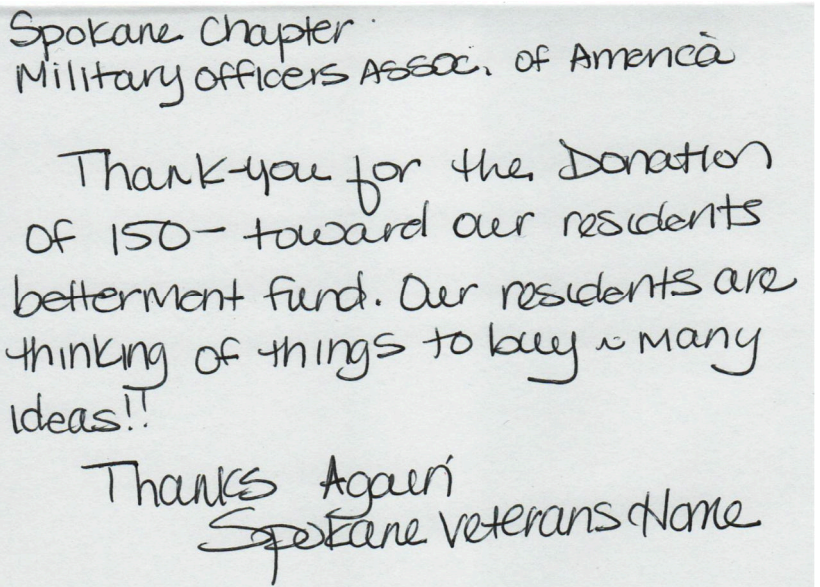 Spokane Chapter
Military Officers Assoc. of America
Thank-you for the Donation
of 150- toward our residents
betterment fund. Our residents are
thinking of things to buy ~ Many
ideas!!
Thanks Again
Spokane Veterans Home